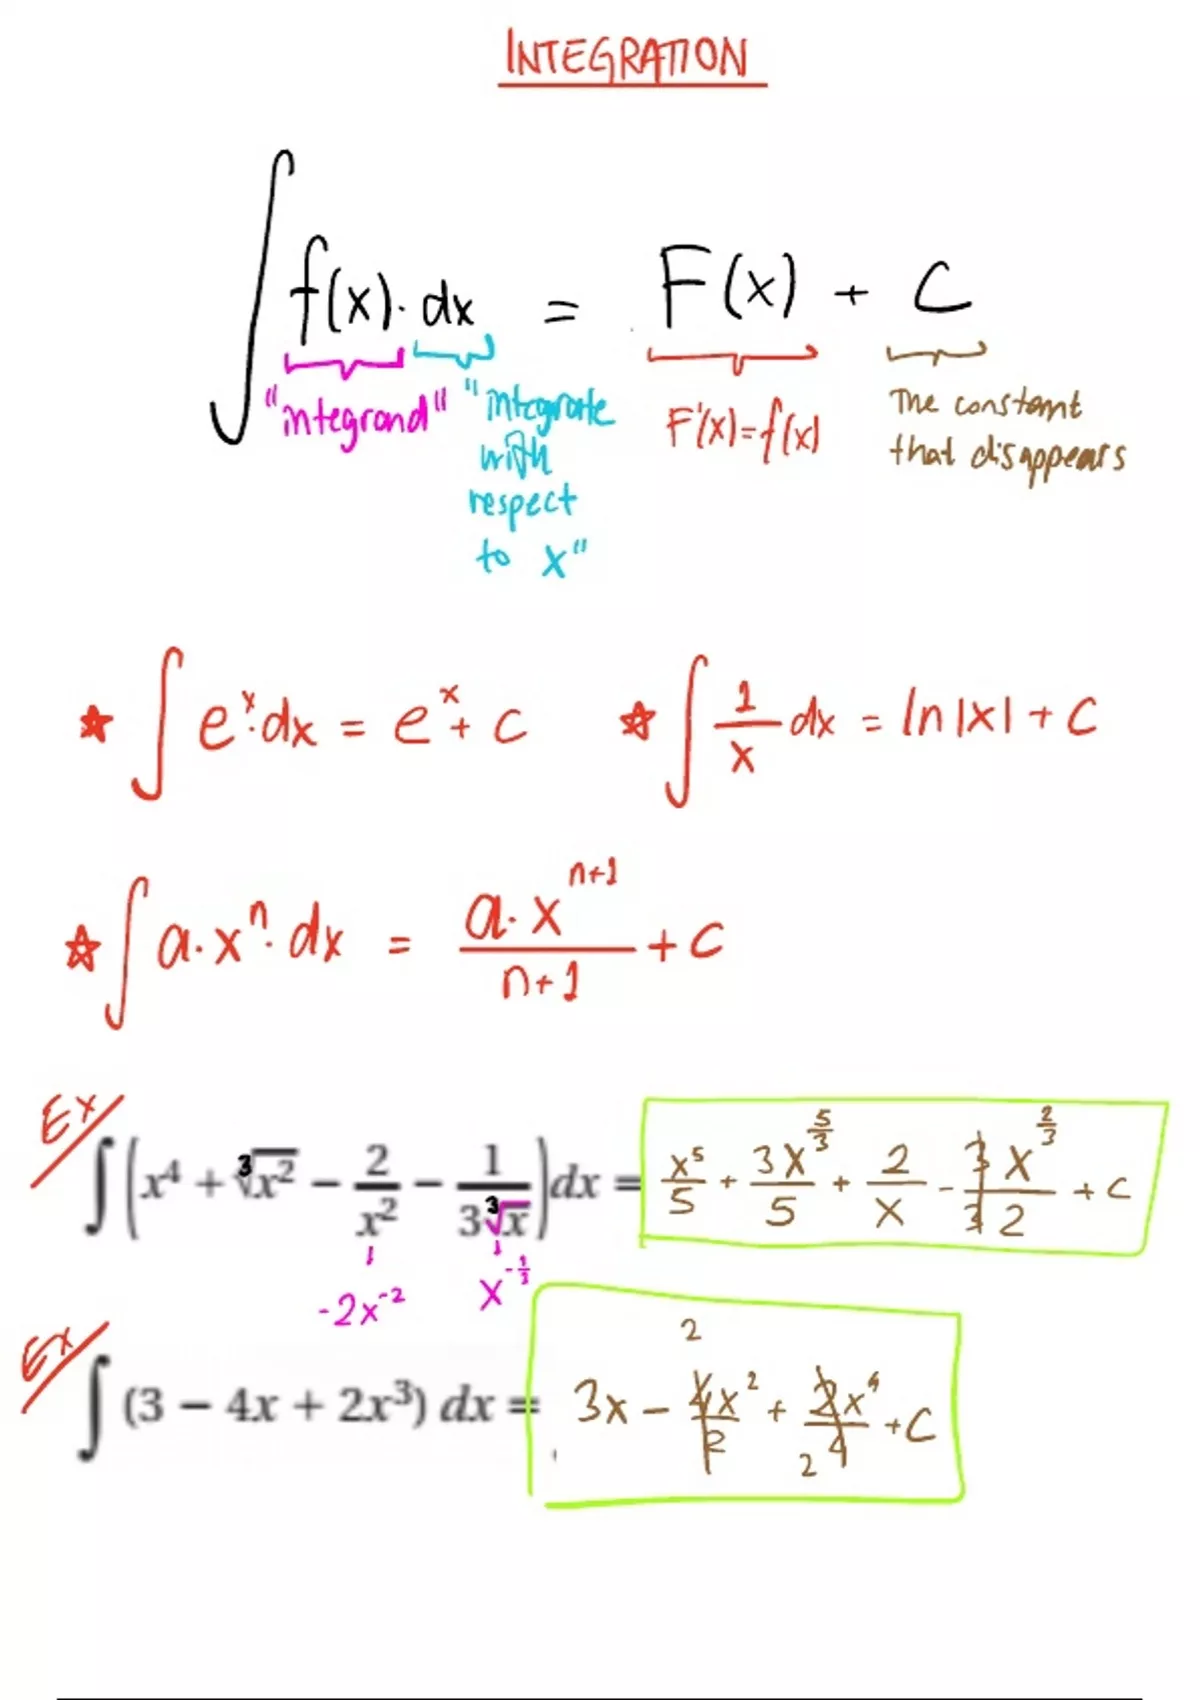 INTEGRATION
∫ f(x)·dx = F(x) + C
"integrand" "integrate with respect to x" F'(x)=f(x) The constant that disappears
☆ ∫ eˣ·dx = eˣ + C ☆ ∫ 1/x dx = ln|x| + C
☆ ∫ a·xⁿ·dx = a·x^(n+1)/(n+1) + C
Ex ∫ (x⁴ + ∛x² − 2/x² − 1/(3∛x)) dx = x⁵/5 + 3x^(5/3)/5 + 2/x − 3x^(2/3)/(3·2) + C
-2x⁻² x^(-1/3)
Ex ∫ (3 − 4x + 2x³) dx = 3x − 4x²/2 + 2x⁴/4 + C
2
2